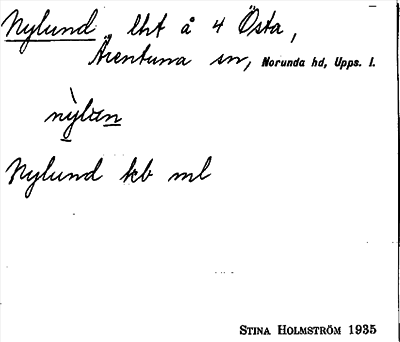 Nylund, lht å 4 Östa,
Ärentuna sn, Norunda hd, Upps. l.
Nylund kb ml
STINA HOLMSTRÖM 1935